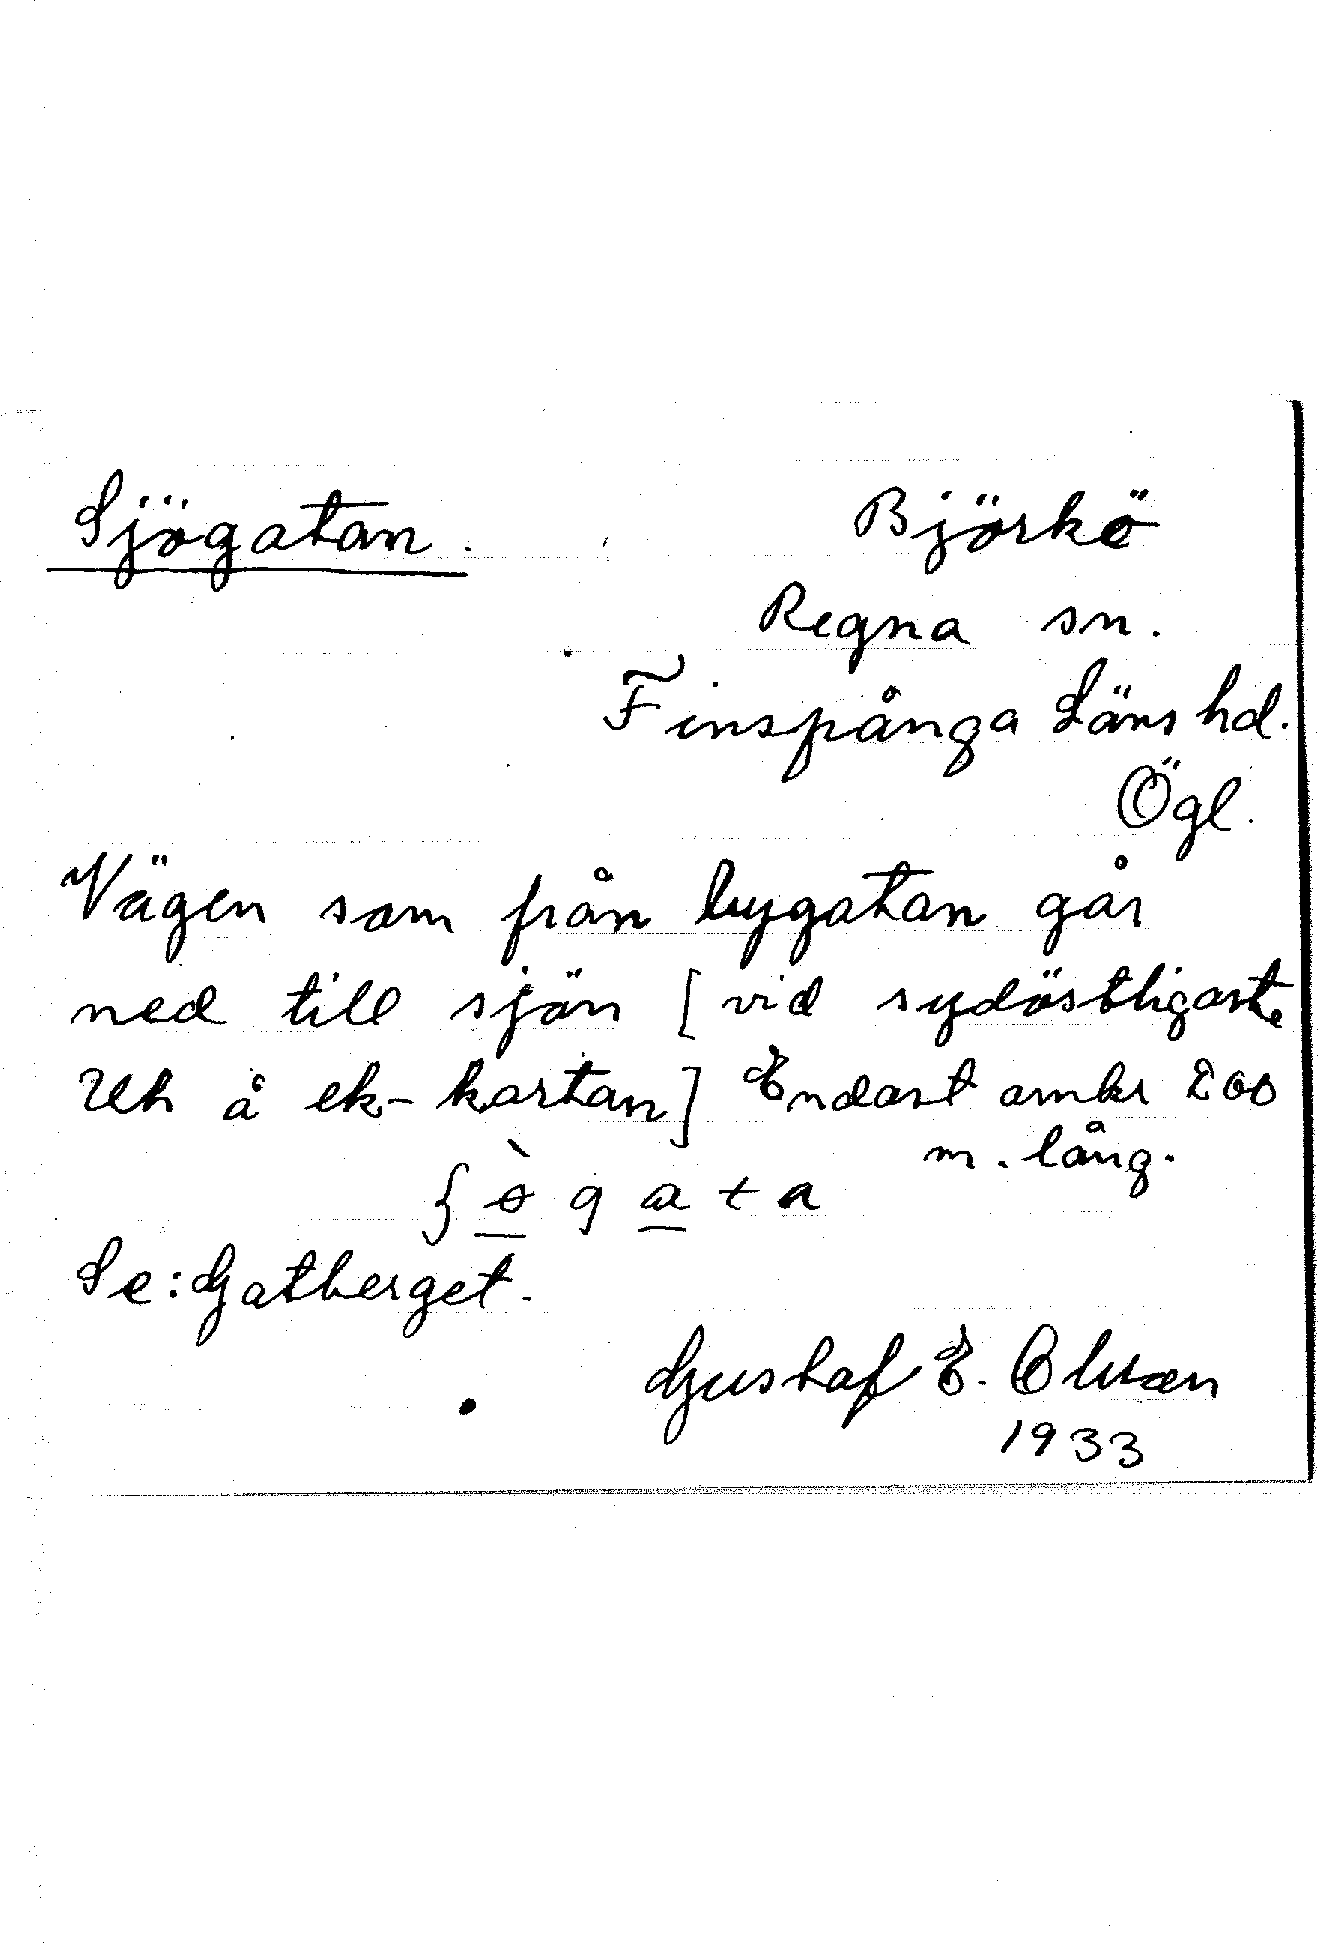 Sjögatan. Björkö
Regna sn.
Finspånga Läns hd.
Ögl.
Vägen som från bygatan går
ned till sjön [vid sydöstligaste
Uth å ek-kartan] Endast omkr 200
m. lång.
ʃ ò g a t a
Se: Gatberget.
Gustaf E. Olsson
1933